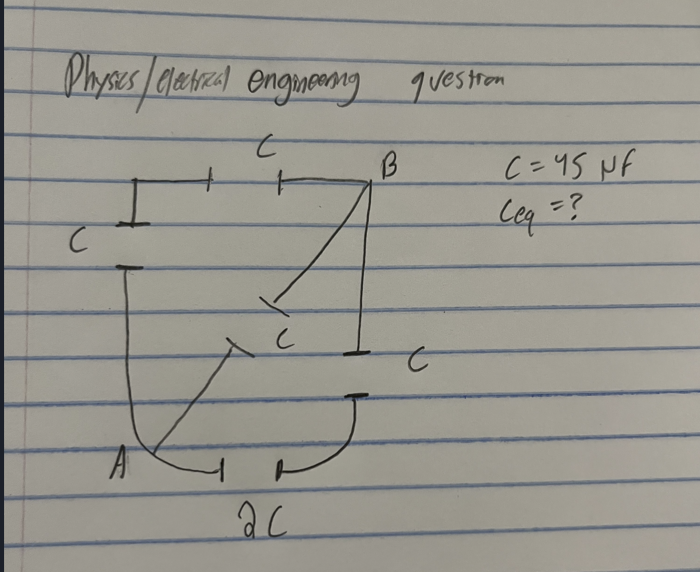 Physics/electrical engineering question
C
B
C = 45 μf
Ceq = ?
C
C
C
A
2C